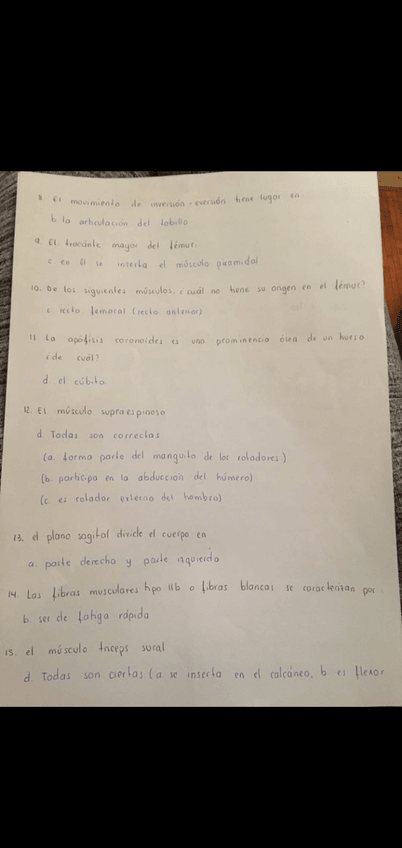 8. El movimiento de inversión-eversión tiene lugar en:
b. la articulación del tobillo
9. El trocánter mayor del fémur:
c. en él se inserta el músculo piramidal
10. De los siguientes músculos, ¿cuál no tiene su origen en el fémur?
c. recto femoral (recto anterior)
11. La apófisis coronoides es una prominencia ósea de un hueso
¿de cuál?
d. el cúbito.
12. El músculo supraespinoso
d. Todas son correctas
(a. forma parte del manguito de los rotadores)
(b. participa en la abducción del húmero)
(c. es rotador externo del hombro)
13. el plano sagital divide el cuerpo en
a. parte derecha y parte izquierda
14. Las fibras musculares tipo IIb o fibras blancas se caracterizan por:
b. ser de fatiga rápida
15. el músculo tríceps sural
d. Todas son ciertas (a se inserta en el calcáneo, b es flexor